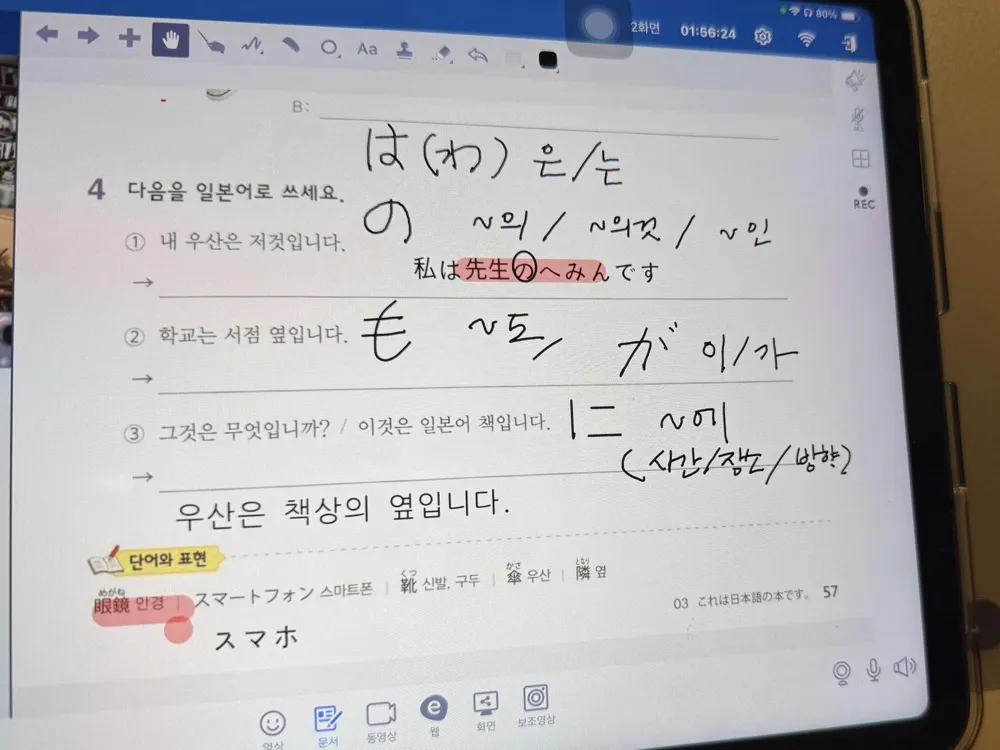 2화면 01:56:24 80%
Aa
REC
B:
は(わ) 은/는
4 다음을 일본어로 쓰세요.
の ~의 / ~의것 / ~인
① 내 우산은 저것입니다.
私は先生のへみんです
→
② 학교는 서점 옆입니다.
も ~도/ が 이/가
→
③ 그것은 무엇입니까? / 이것은 일본어 책입니다.
に ~에
(시간/장소/방향)
→
우산은 책상의 옆입니다.
단어와 표현
眼鏡 めがね 안경 | スマートフォン 스마트폰 | 靴 くつ 신발, 구두 | 傘 かさ 우산 | 隣 となり 옆
スマホ
03 これは日本語の本です。 57
영상 문서 동영상 웹 화면 보조영상